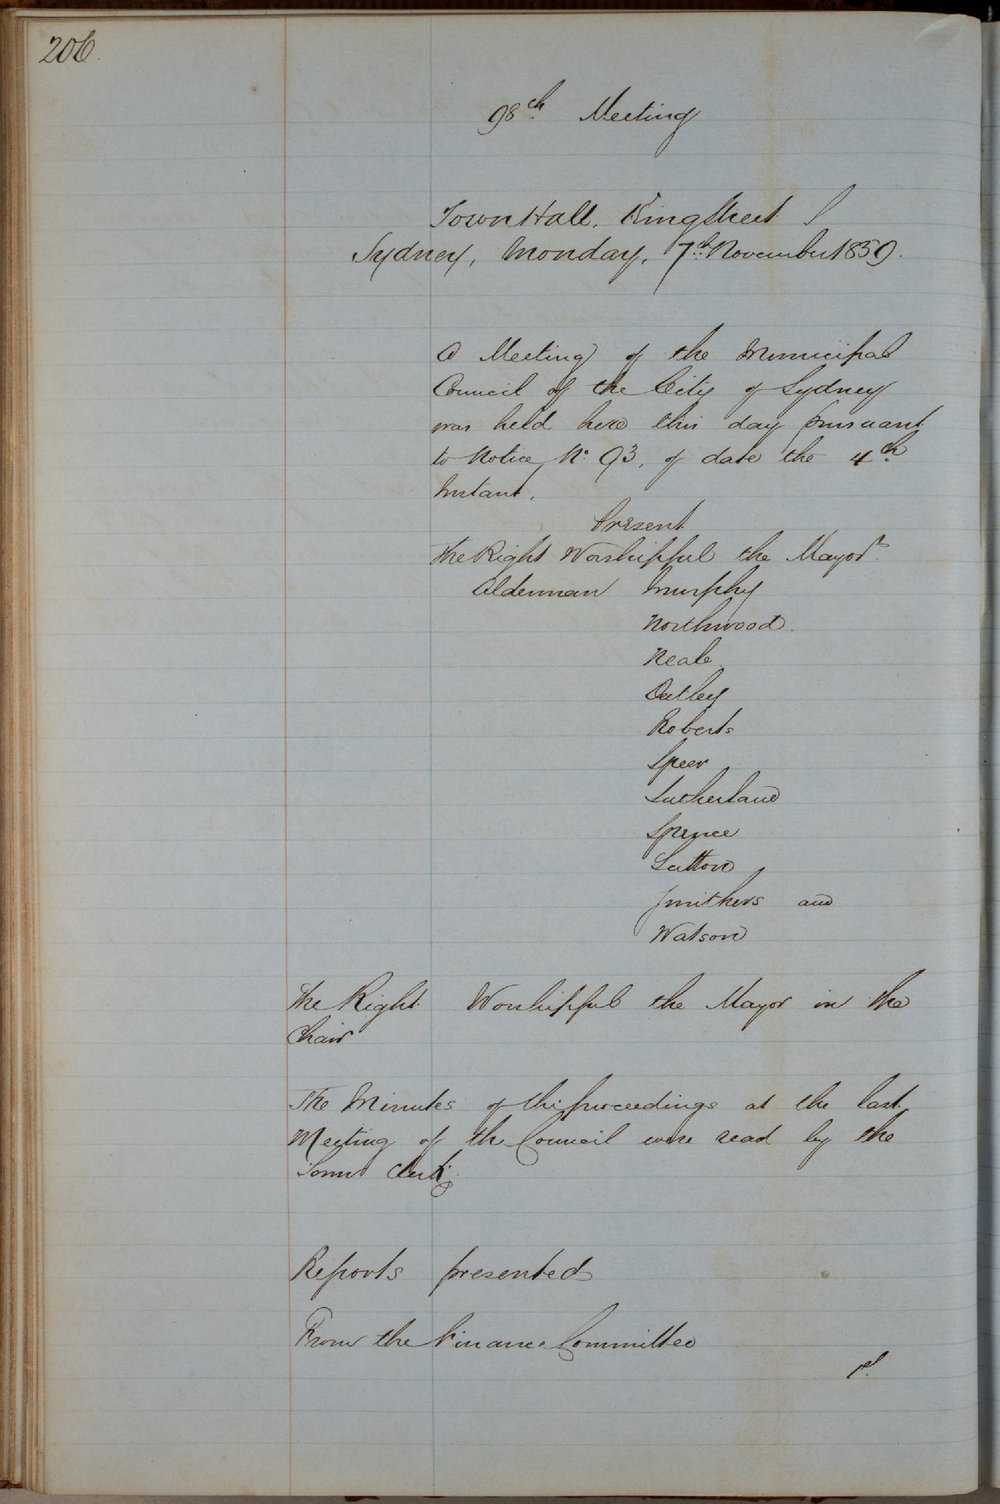 206.
98th Meeting
Town Hall, King Street
Sydney, Monday, 7th November 1859.
A Meeting of the Municipal
Council of the City of Sydney
was held here this day pursuant
to Notice No. 93, of date the 4th
Instant.
Present
The Right Worshipful the Mayor
Alderman Murphy
Northwood.
Neale
Oatley
Roberts
Speer
Sutherland
Spence
Sutton
Smithers and
Watson
The Right Worshipful the Mayor in the
Chair
The Minutes of the proceedings at the last
Meeting of the Council were read by the
Town Clerk.
Reports presented
From the Finance Committee
1st.